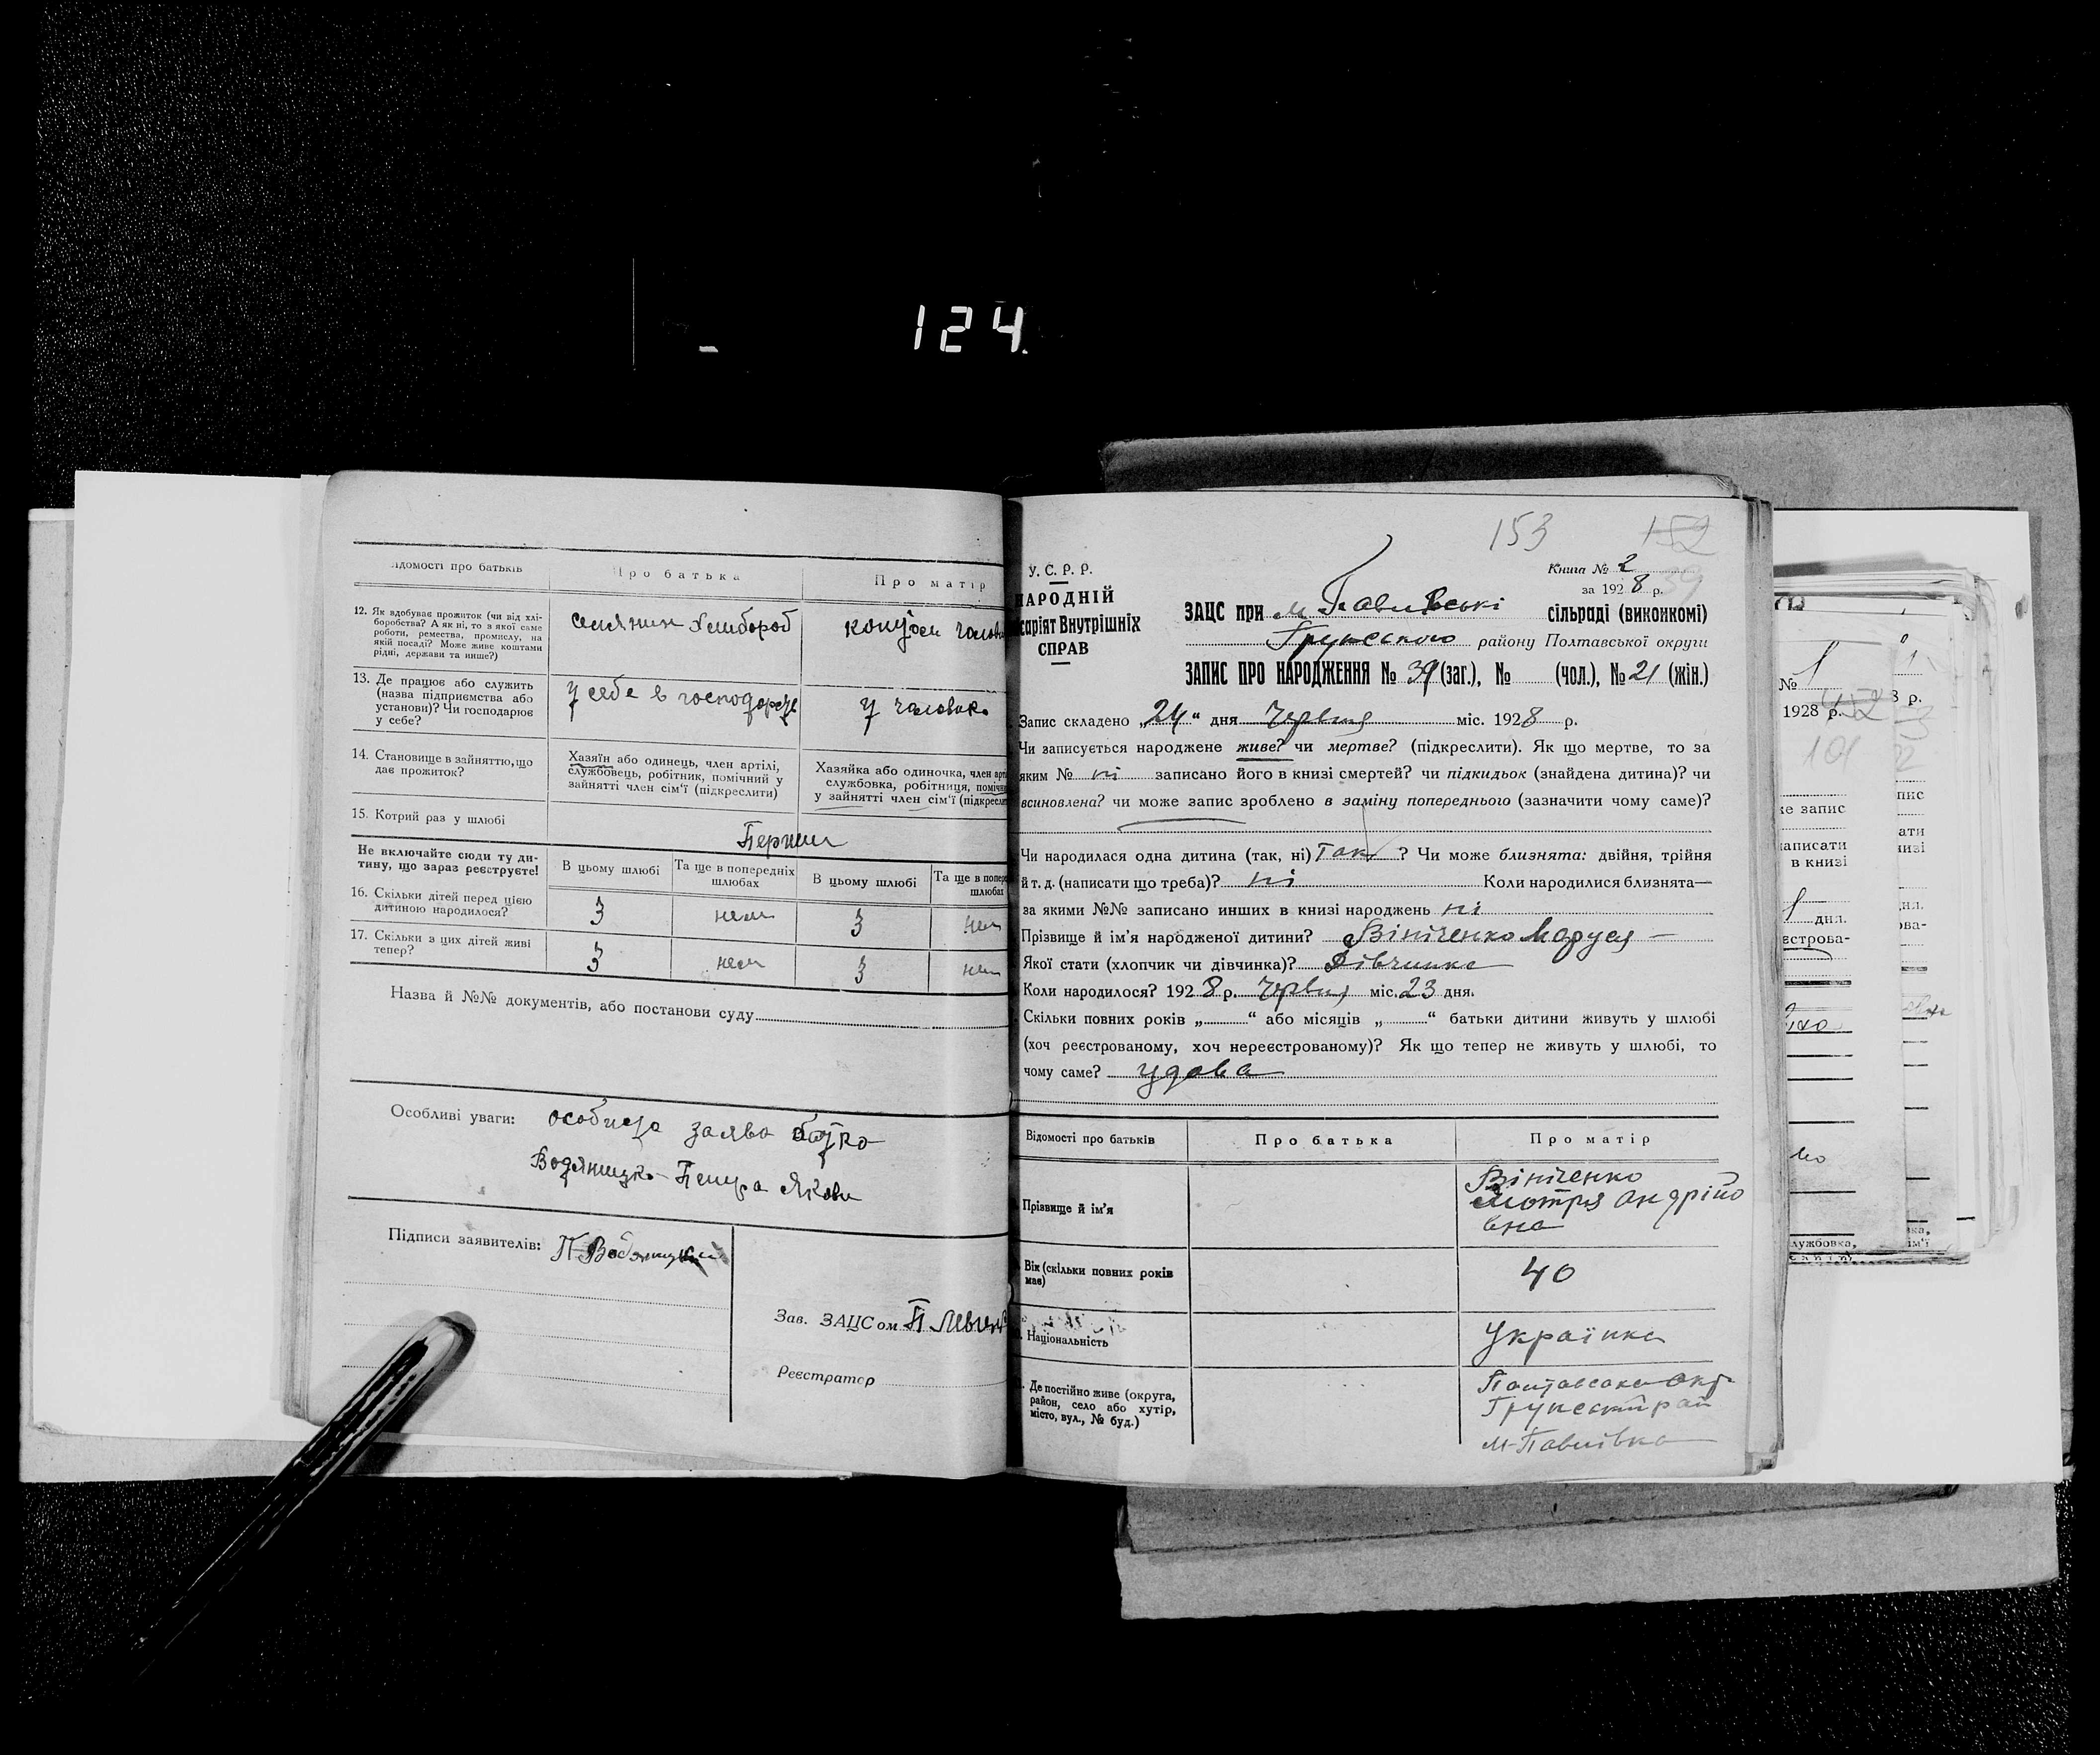 124.
ідомості про батьків
Про батька
Про матір
12. Як здобуває прожиток (чи від хлі-
боробства? А як ні, то з якої саме
роботи, ремества, промислу, на
якій посаді? Може живе коштами
рідні, держави та инше?)
селянин хлибороб
13. Де працює або служить
(назва підприємства або
установи)? Чи господарює
у себе?
у себе в господорстві
у чаловіка
14. Становище в зайняттю, що
дає прожиток?
Хазяїн або одинець, член артілі,
службовець, робітник, помічний у
зайнятті член сім'ї (підкреслити)
Хазяйка або одиночка, член арті
службовка, робітниця, помічн
у зайнятті член сім'ї (підкресли
15. Котрий раз у шлюбі
Перший
Не включайте сюди ту ди-
тину, що зараз реєструєте!
В цьому шлюбі
Та ще в попередніх
шлюбах
В цьому шлюбі
Та ще в попере
шлюбах
16. Скільки дітей перед цією
дитиною народилося?
3
нем
3
нем
17. Скільки з цих дітей живі
тепер?
3
нем
3
нем
Назва й №№ документів, або постанови суду
Особливі уваги:
особиста заява батка
Підписи заявителів:
Зав. ЗАЦСом
Реєстратор
153
152
У. С. Р. Р.
НАРОДНІЙ
саріят Внутрішніх
СПРАВ
Книга № 2
за 1928 р.
39
ЗАЦС при м. Павлівські сільраді (виконкомі)
Грунського району Полтавської округи
ЗАПИС ПРО НАРОДЖЕННЯ № 39 (заг.), № (чол.), № 21 (жін.)
Запис складено „24“ дня Червня міс. 1928 р.
Чи записується народжене живе? чи мертве? (підкреслити). Як що мертве, то за
яким № ні записано його в книзі смертей? чи підкидьок (знайдена дитина)? чи
всиновлена? чи може запис зроблено в заміну попереднього (зазначити чому саме)?
Чи народилася одна дитина (так, ні) так ? Чи може близнята: двійня, трійня
й т. д. (написати що треба)? ні Коли народилися близнята—
за якими №№ записано инших в книзі народжень ні
Прізвище й ім'я народженої дитини? Вініченко Маруся —
Якої стати (хлопчик чи дівчинка)? Дівчинка
Коли народилося? 1928 р. Червня міс. 23 дня.
Скільки повних років „ “ або місяців „ “ батьки дитини живуть у шлюбі
(хоч реєстрованому, хоч нереєстрованому)? Як що тепер не живуть у шлюбі, то
чому саме? удова
Відомості про батьків
Про батька
Про матір
Прізвище й ім'я
Вініченко
Мотря Андрійо
вна
Вік (скільки повних років
має)
40
Національність
Українка
Де постійно живе (округа,
район, село або хутір,
місто, вул., № буд.)
Полтавська окр
Грунский рай
м-Павлівка
№ 1
1928 р.
152
101
8 р.
же запис
написати
в книзі
дня.
єстрова-
лужбовка,
пис
ати
изі
ня.
ова-
ка,
ім'ї